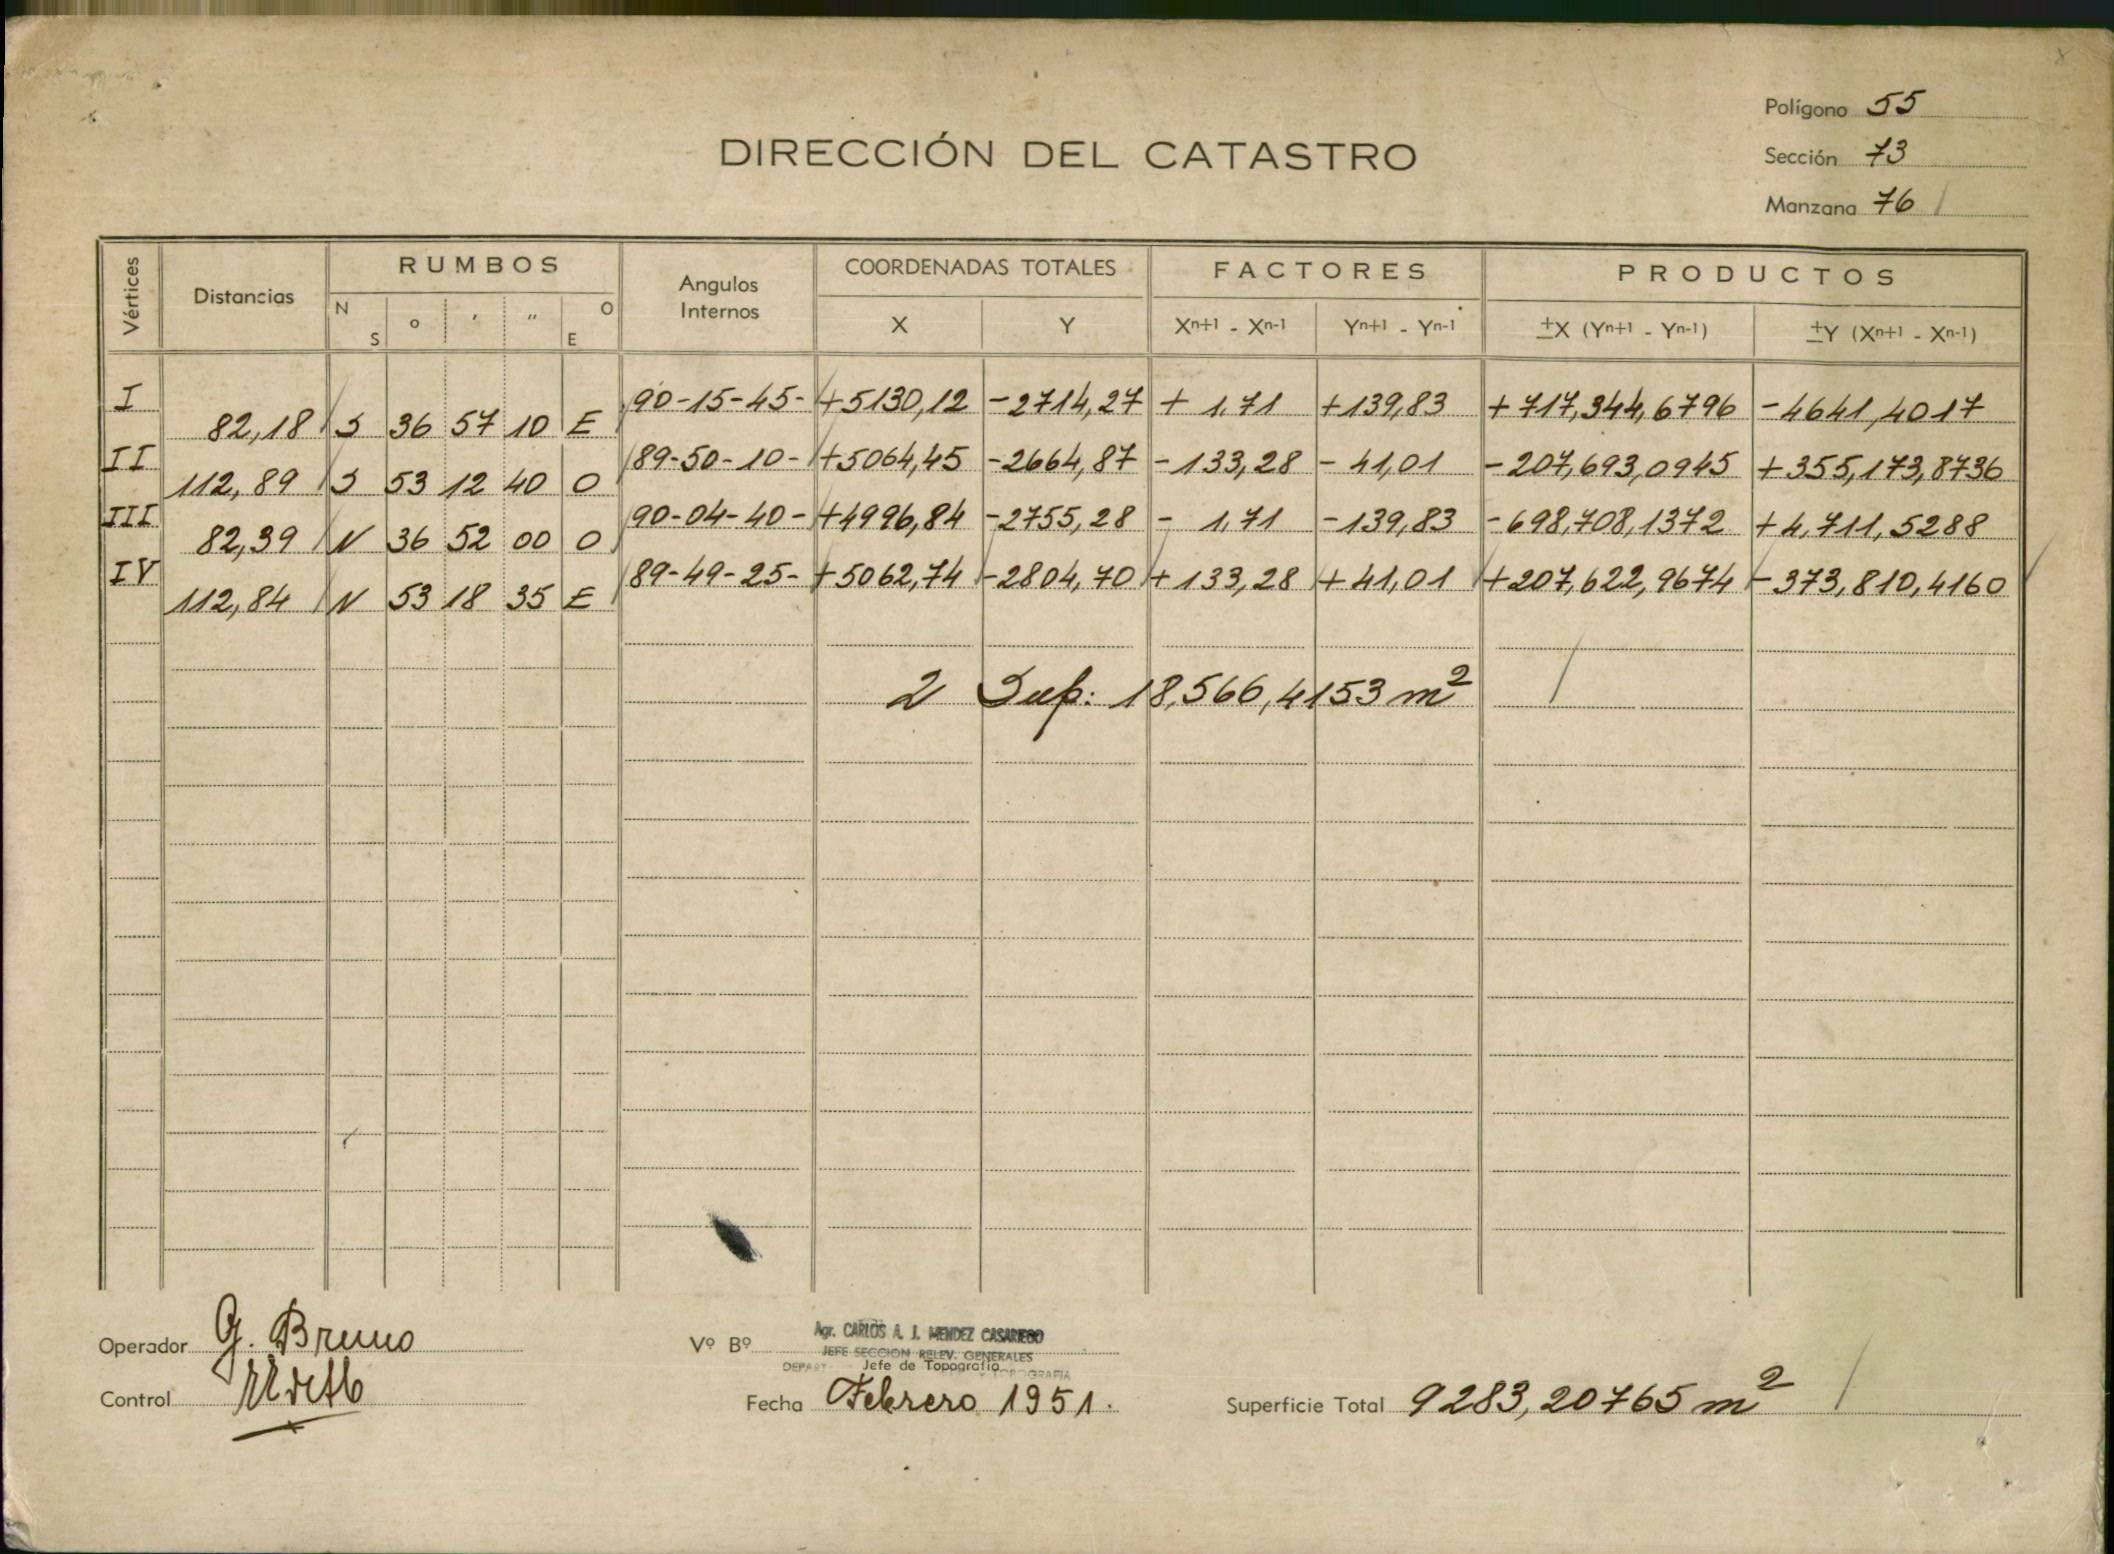 Polígono 55
DIRECCIÓN DEL CATASTRO
Sección 73
Manzana 76
Vértices Distancias RUMBOS Angulos Internos COORDENADAS TOTALES FACTORES PRODUCTOS
N S o ′ ″ O E X Y Xn+1 - Xn-1 Yn+1 - Yn-1 ±X (Yn+1 - Yn-1) ±Y (Xn+1 - Xn-1)
I 90-15-45- +5130,12 -2714,27 + 1,71 +139,83 +717,344,6796 -4641,4017
82,18 S 36 57 10 E
II 89-50-10- +5064,45 -2664,87 -133,28 - 41,01 -207,693,0945 +355,173,8736
112,89 S 53 12 40 O
III 90-04-40- +4996,84 -2755,28 - 1,71 -139,83 -698,708,1372 +4,711,5288
82,39 N 36 52 00 O
IV 89-49-25- +5062,74 -2804,70 +133,28 +41,01 +207,622,9674 -373,810,4160
112,84 N 53 18 35 E
2 Sup: 18,566,4153 m²
Operador G. Bruno
Vº Bº Agr. CARLOS A. J. MENDEZ CASARIEGO
JEFE SECCION RELEV. GENERALES
Jefe de Topografía
DEPART TOPOGRAFIA
Control
Fecha Febrero 1951.
Superficie Total 9283,20765 m²